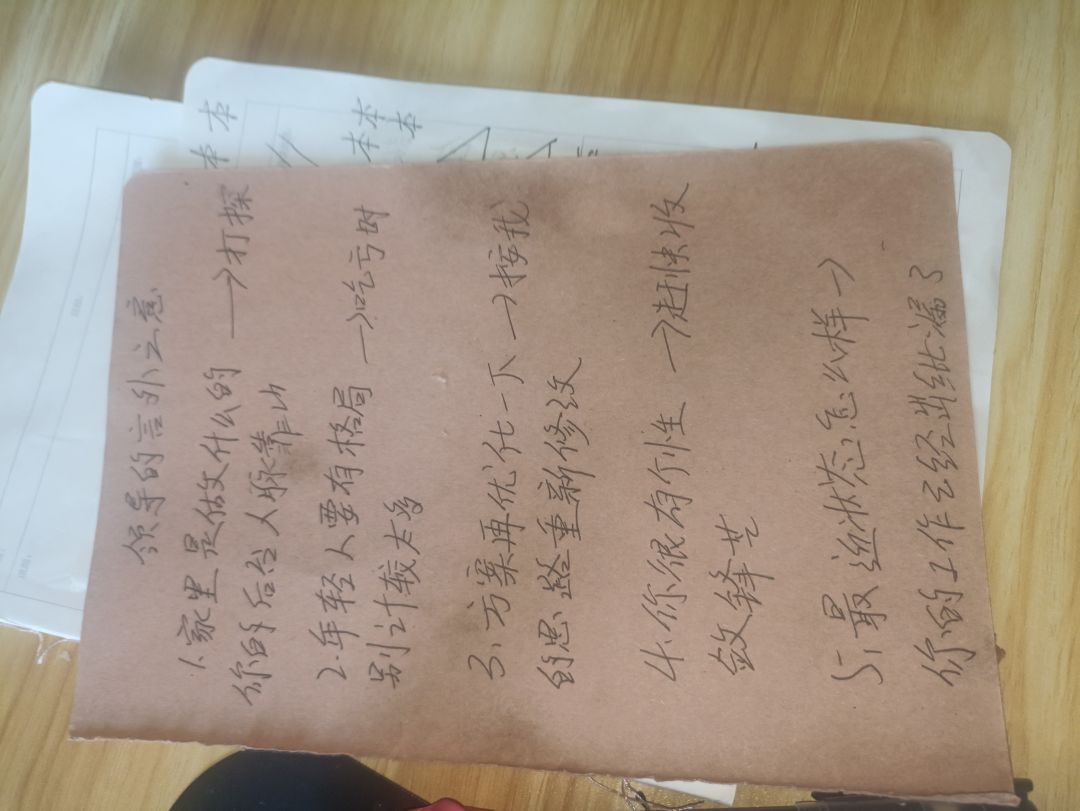 领导的言外之意
1.家里是做什么的 →打探
你的后台人脉靠山
2.年轻人要有格局 →吃亏时
别计较太多
3、方案再优化一下 →按我
的思路重新修改
4、你很有个性 →赶快收
敛锋芒
5、最近状态怎么样→
你的工作已经出纰漏了
本 本
本 本
本